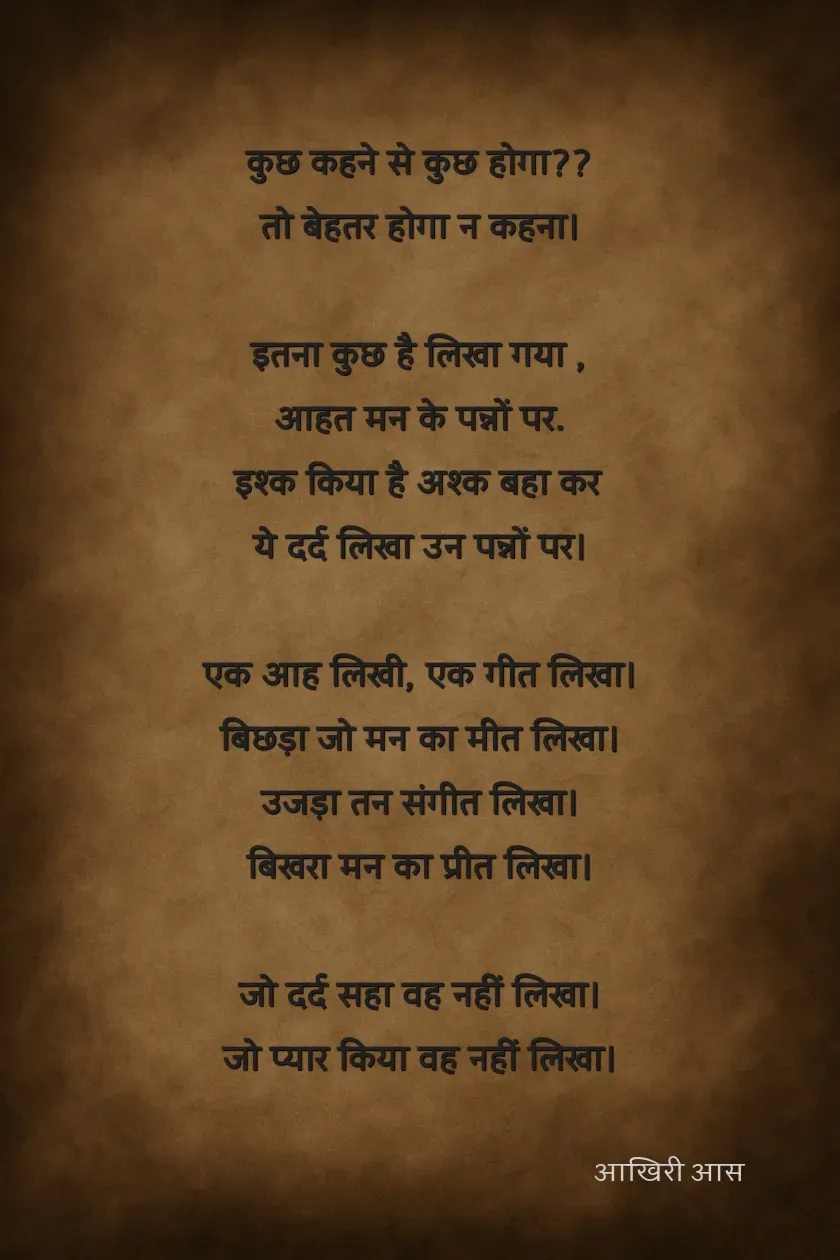 कुछ कहने से कुछ होगा??
तो बेहतर होगा न कहना।
इतना कुछ है लिखा गया ,
आहत मन के पन्नों पर.
इश्क किया है अश्क बहा कर
ये दर्द लिखा उन पन्नों पर।
एक आह लिखी, एक गीत लिखा।
बिछड़ा जो मन का मीत लिखा।
उजड़ा तन संगीत लिखा।
बिखरा मन का प्रीत लिखा।
जो दर्द सहा वह नहीं लिखा।
जो प्यार किया वह नहीं लिखा।
आखिरी आस